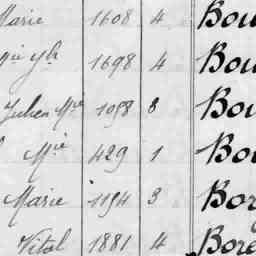 Marie 1608 4 Bou
Mie Yh 1698 4 Bou
Julien Mie 1098 8 Bou
Mie 429 1 Bou
Marie 1194 3 Bor
Vital 1881 4 Bore